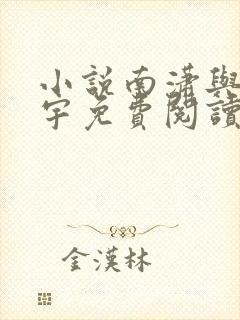 小說南瀟與
宇免費閱讀
金漢林